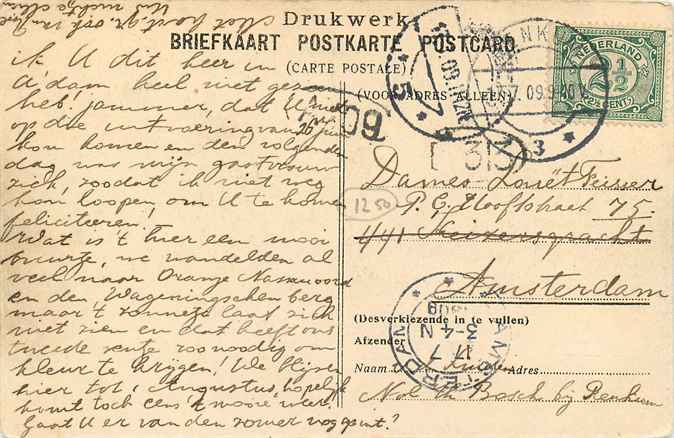 Drukwerk
BRIEFKAART POSTKARTE POSTCARD.
(CARTE POSTALE)
(VOOR ADRES ALLEEN)
NEDERLAND
2½
CENT
ik U dit keer in
A'dam heel niet gezien
heb! jammer, dat U niet
op die uitvoering van 26 Juni
kon komen en den volgenden
dag was mijn gastvrouw
ziek, zoodat ik niet weg
kon loopen om U te komen
feliciteeren!
Wat is 't hier een mooi
buurtje, we wandelden al
veel naar Oranje Nassauoord
en den Wageningschen berg
maar 't zonnetje laat zich
niet zien en dat heeft ons
tweede rente zoo noodig om
kleur te krijgen! We blijven
hier tot 1 Augustus, hopelijk
komt toch eens 't mooie weer.
Gaat U er van den zomer nog uit?
Dames Louët Feisser
P. C. Hooftstraat 75.
441 Keizersgracht
Amsterdam
1250
313
(Desverkiezende in te vullen)
Afzender
Naam
Adres
bij Renkum
AMSTERDAM
17 7
3-4 N